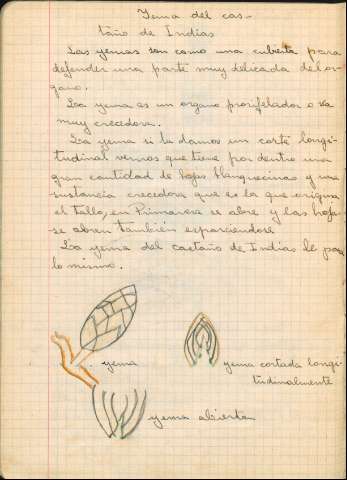 Yema del cas-
taño de Indias
Las yemas son como una cubierta para
defender una parte muy delicada del or-
gano.
La yema es un organo prorifelador o sea
muy crecedora.
La yema si la damos un corte longi-
tudinal vemos que tiene por dentro una
gran cantidad de hojas blanquecinas y una
sustancia crecedora que es la que origina
el tallo, en Primavera se abre y las hojas
se abren también esparciendose
La yema del castaño de Indias le pasa
lo mismo.
yema
yema cortada longi-
tudinalmente
yema abierta